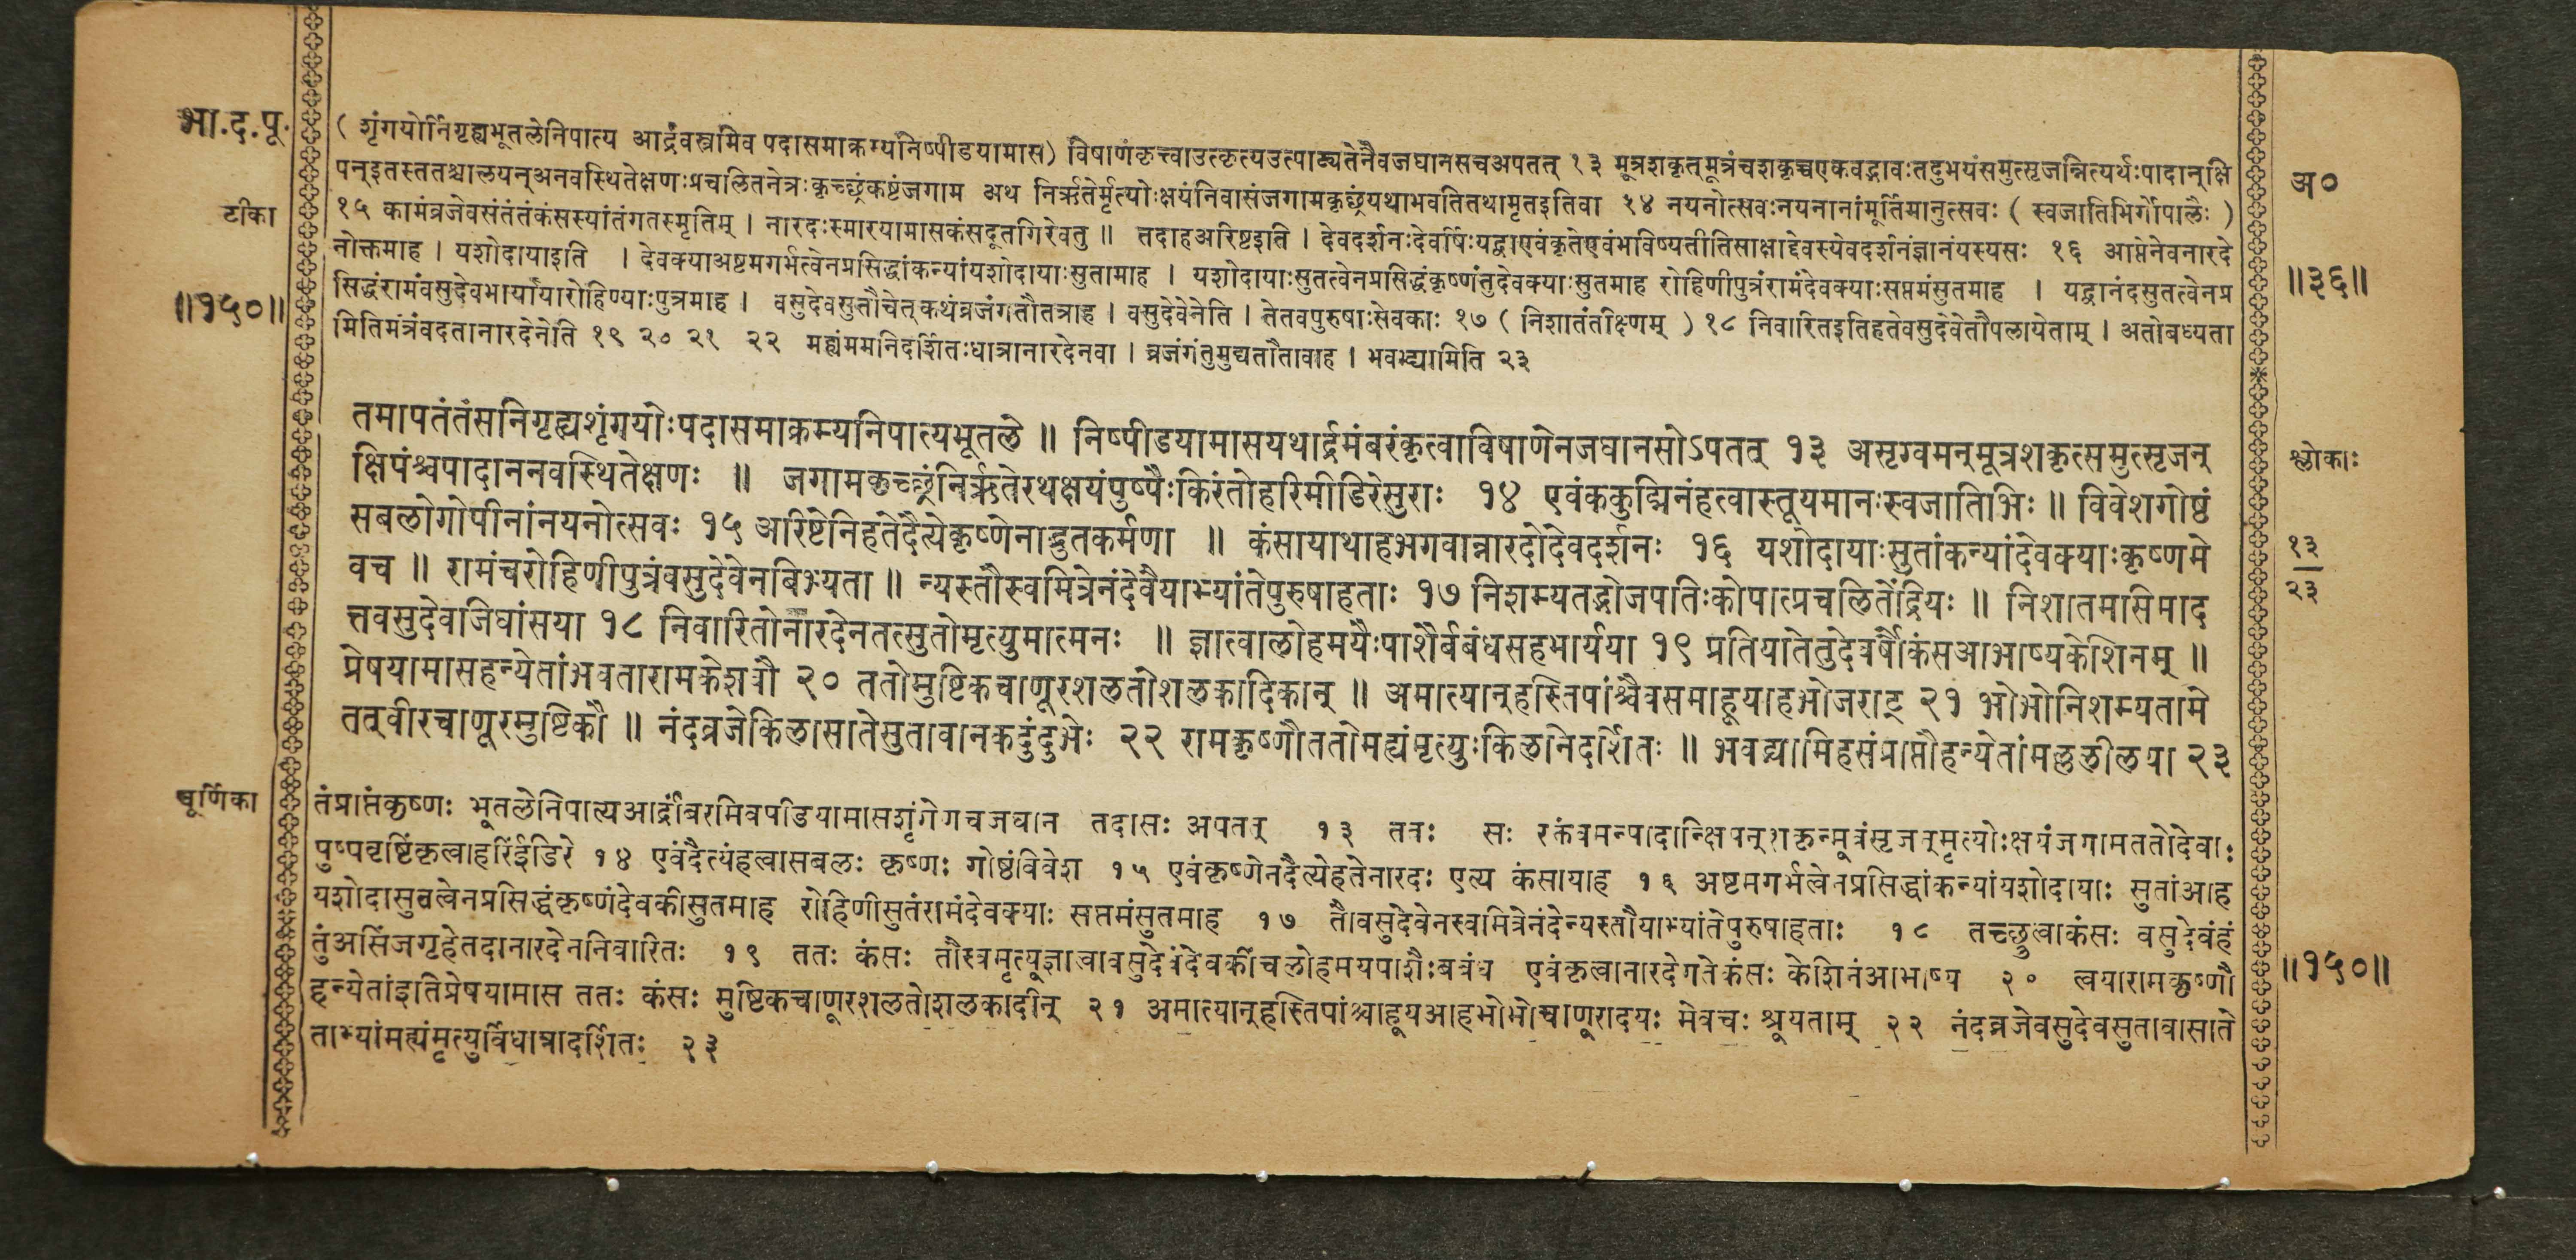 भा.द.पू.
( शृंगयोर्निगृह्यभूतलेनिपात्य आर्द्रंवस्त्रमिव पदासमाक्रम्यनिष्पीडयामास) विषाणंकृत्त्वाउत्कृत्यउत्पाट्यतेनैवजघानसचअपतत् १३ मूत्रशकृत्मूत्रंचशकृच्चएकवद्भावःतदुभयंसमुत्सृजन्नित्यर्थःपादान्क्षि
पन्इतस्ततश्चालयन्अनवस्थितेक्षणःप्रचलितनेत्रःकृच्छ्रंकष्टंजगाम अथ निर्ऋतेर्मृत्योःक्षयंनिवासंजगामकृछ्रंयथाभवतितथामृतइतिवा १४ नयनोत्सवःनयनानांमूर्तिमानुत्सवः ( स्वजातिभिर्गोपालैः )
अ०
टीका
१५ कामंव्रजेवसंतंतंकंसस्यांतंगतस्मृतिम् । नारदःस्मारयामासकंसदूतगिरेवतु ॥ तदाहअरिष्टइति । देवदर्शनःदेवर्षिःयद्वाएवंकृतेएवंभविष्यतीतिसाक्षाद्देवस्येवदर्शनंज्ञानंयस्यसः १६ आप्तेनेवनारदे
नोक्तमाह । यशोदायाइति । देवक्याअष्टमगर्भत्वेनप्रसिद्धांकन्यांयशोदायाःसुतामाह । यशोदायाःसुतत्वेनप्रसिद्धंकृष्णंतुदेवक्याःसुतमाह रोहिणीपुत्रंरामंदेवक्याःसप्तमंसुतमाह । यद्वानंदसुतत्वेनप्र
॥३६॥
॥१५०॥
सिद्धंरामंवसुदेवभार्यायारोहिण्याःपुत्रमाह । वसुदेवसुतौचेत्कथंव्रजंगतौतत्राह । वसुदेवेनेति । तेतवपुरुषाःसेवकाः १७ ( निशातंतीक्ष्णम् ) १८ निवारितइतिहतेवसुदेवेतौपलायेताम् । अतोबध्यता
मितिमंत्रंवदतानारदेनेति १९ २० २१ २२ मह्यंममनिदर्शितःधात्रानारदेनवा । व्रजंगंतुमुद्यतौतावाह । भवभ्द्यामिति २३
तमापतंतंसनिगृह्यशृंगयोःपदासमाक्रम्यनिपात्यभूतले ॥ निष्पीडयामासयथार्द्रमंबरंकृत्वाविषाणेनजघानसोऽपतत् १३ असृग्वमन्मूत्रशकृत्समुत्सृजन्
श्लोकाः
क्षिपंश्चपादाननवस्थितेक्षणः ॥ जगामकृच्छ्रंनिर्ऋतेरथक्षयंपुष्पैःकिरंतोहरिमीडिरेसुराः १४ एवंककुद्मिनंहत्वास्तूयमानःस्वजातिभिः ॥ विवेशगोष्ठं
सबलोगोपीनांनयनोत्सवः १५ अरिष्टेनिहतेदैत्येकृष्णेनाद्भुतकर्मणा ॥ कंसायाथाहभगवान्नारदोदेवदर्शनः १६ यशोदायाःसुतांकन्यांदेवक्याःकृष्णमे
१३
२३
वच ॥ रामंचरोहिणीपुत्रंवसुदेवेनबिभ्यता ॥ न्यस्तौस्वमित्रेनंदेवैयाभ्यांतेपुरुषाहताः १७ निशम्यतद्भोजपतिःकोपात्प्रचलितेंद्रियः ॥ निशातमासिमाद
त्तवसुदेवजिघांसया १८ निवारितोनारदेनतत्सुतोमृत्युमात्मनः ॥ ज्ञात्वालोहमयैःपाशैर्बबंधसहभार्यया १९ प्रतियातेतुदेवर्षौकंसआभाष्यकेशिनम् ॥
प्रेषयामासहन्येतांभवतारामकेशवौ २० ततोमुष्टिकचाणूरशलतोशलकादिकान् ॥ अमात्यान्हस्तिपांश्चैवसमाहूयाहभोजराट् २१ भोभोनिशम्यतामे
तत्वीरचाणूरमुष्टिकौ ॥ नंदव्रजेकिलासातेसुतावानकदुंदुभेः २२ रामकृष्णौततोमह्यंमृत्युःकिलनिदर्शितः ॥ भवद्भ्यामिहसंप्राप्तौहन्येतांमल्ललीलया २३
चूर्णिका
तंप्राप्तंकृष्णः भूतलेनिपात्यआर्द्रांबरमिवपीडयामासशृंगेणचजघान तदासः अपतत् १३ ततः सः रक्तंवमन्पादान्क्षिपन्शकृन्मूत्रंसृजन्मृत्योःक्षयंजगामततोदेवाः
पुष्पवृष्टिंकृत्वाहरिंईडिरे १४ एवंदैत्यंहत्वासबलः कृष्णः गोष्ठंविवेश १५ एवंकृष्णेनदैत्येहतेनारदः एत्य कंसायाह १६ अष्टमगर्भत्वेनप्रसिद्धांकन्यांयशोदायाः सुतांआह
यशोदासुतत्वेनप्रसिद्धंकृष्णंदेवकीसुतमाह रोहिणीसुतंरामंदेवक्याः सप्तमंसुतमाह १७ तौवसुदेवेनस्वमित्रेनंदेन्यस्तौयाभ्यांतेपुरुषाहताः १८ तच्छ्रुत्वाकंसः वसुदेवंहं
तुंअसिंजगृहेतदानारदेननिवारितः १९ ततः कंसः तौस्वमृत्यूज्ञात्वावसुदेवंदेवकींचलोहमयपाशैःबबंध एवंकृत्वानारदेगतेकंसः केशिनंआभाष्य २० त्वयारामकृष्णौ
॥१५०॥
हन्येतांइतिप्रेषयामास ततः कंसः मुष्टिकचाणूरशलतोशलकादीन् २१ अमात्यान्हस्तिपांश्चाहूयआहभोभोचाणूरादयः मेवचः श्रूयताम् २२ नंदव्रजेवसुदेवसुतावासाते
ताभ्यांमह्यंमृत्युर्विधात्रादर्शितः २३